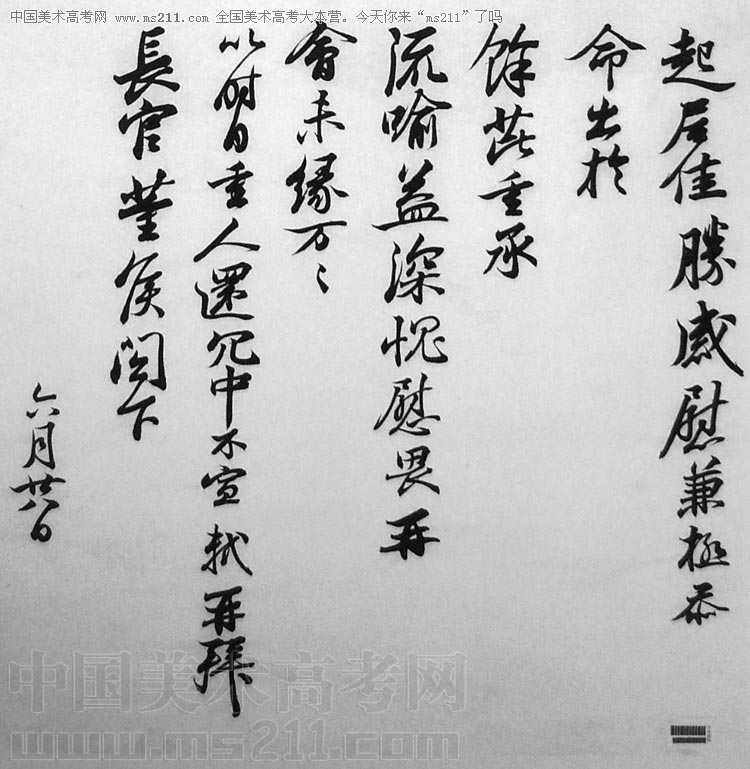 中国美术高考网 www.ms211.com 全国美术高考大本营。今天你来“ms211”了吗
起居佳勝感慰兼極忝
命出於
餘芘重承
流喻益深愧慰畏再
會未緣万〻
以時自重人還冗中不宣軾再拜
長官董侯閣下
六月廿八日
中国美术高考网
www.ms211.com